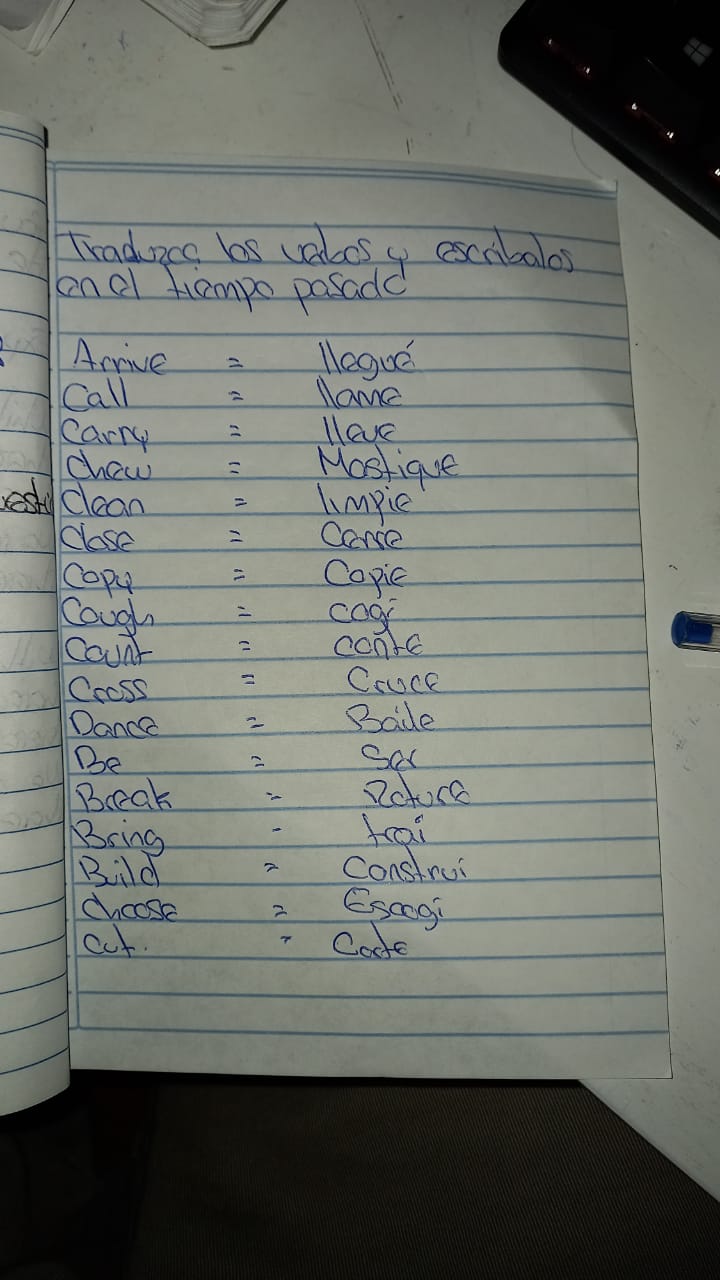 Traduzca los verbos y escríbalos
en el tiempo pasado
Arrive = llegué
Call = llame
Carry = lleve
Chew = Mastique
Clean = limpie
Close = Cerre
Copy = Copie
Cough = cogi
Count = conte
Cross = Cruce
Dance = Baile
Be = Ser
Break =
Bring - traí
Build = Construí
Choose = Escogi
Cut. = Corte